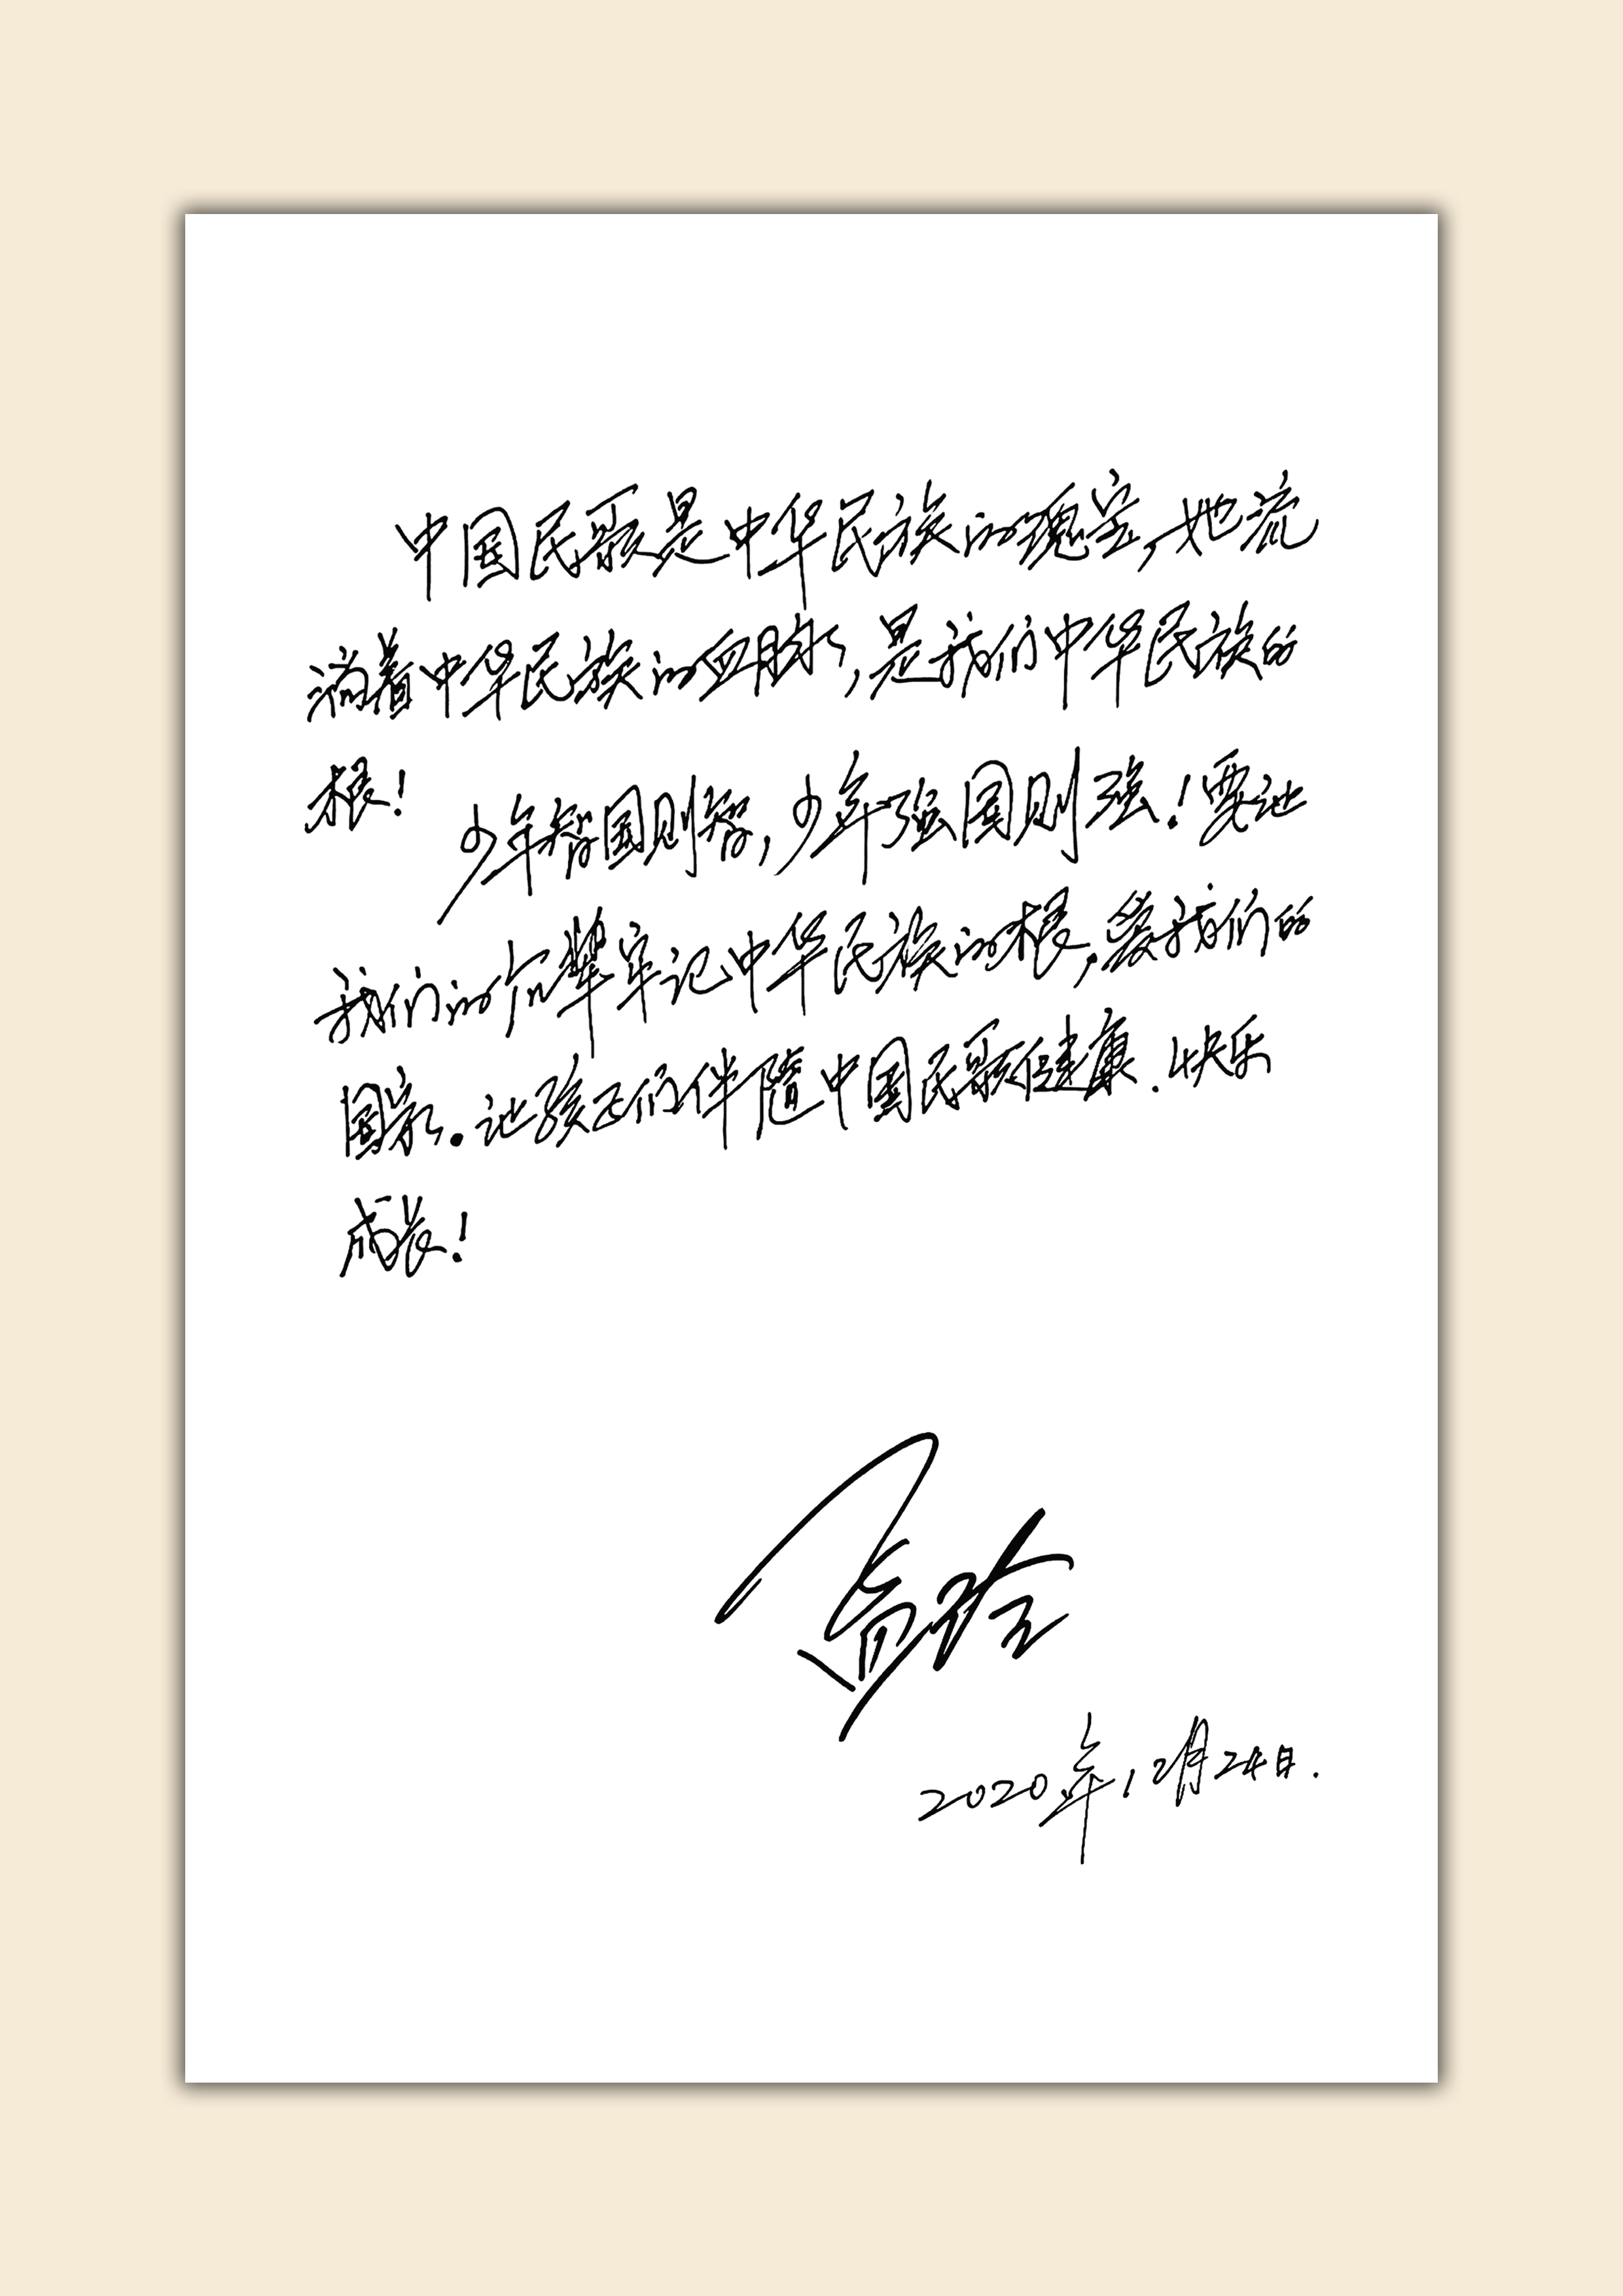 中国民歌是中华民族的瑰宝,她流
淌着中华民族的血脉,是我们中华民族的
根!少年智国则智,少年强国则强!要让
我们的后辈牢记中华民族的根,爱我们的
国家.让孩子们伴随中国民歌健康.快乐
成长!
2020年12月24日.